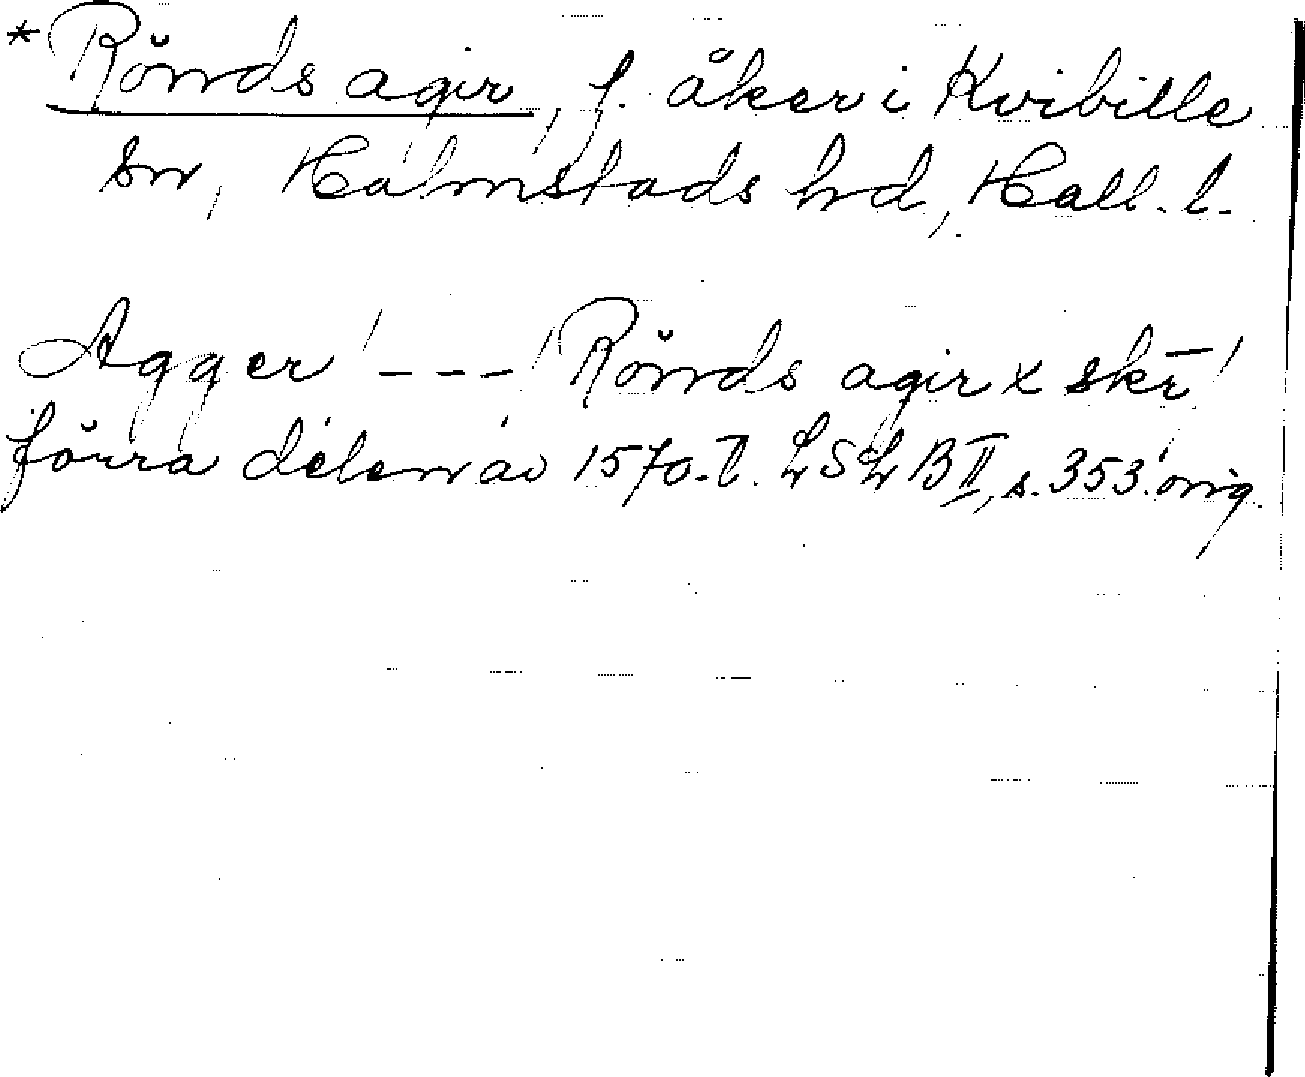 *Rönds agir, f. åker i Kvibille
sn, Halmstads hrd, Hall. l.
Agger --- Rönds agir x skr̄
förra delen av 1570-t. LSLB II, s. 353. orig.